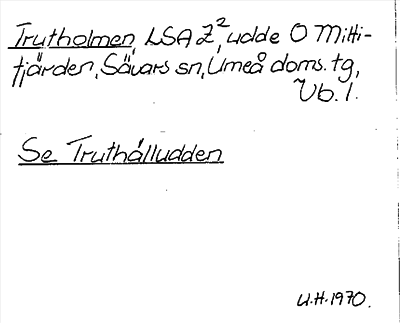 Trutholmen, LSA Z², udde O Mitti-
fjärden, Sävars sn, Umeå doms. tg,
Vb. l.
Se Truthälludden
U.H. 1970.